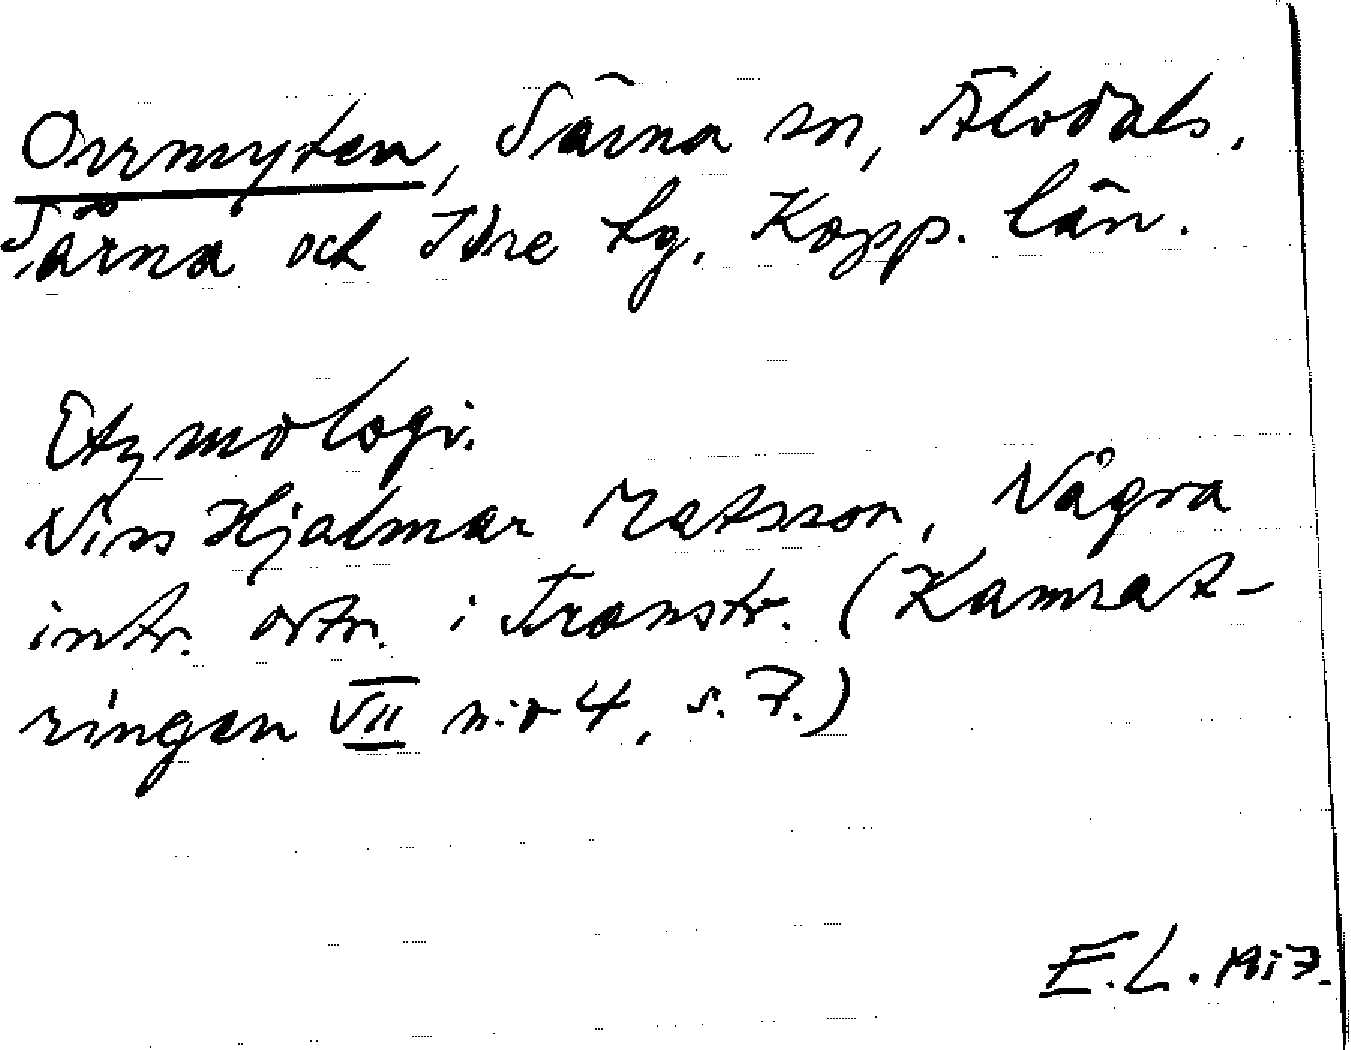 Orrmyten, Särna sn, Älvdals,
Särna och Idre tg. Kopp. län.
Etymologi.
Viss Hjalmar Matsson, Några
intr. ortn. i Transtr. (Kamrat-
ringen VII n:o 4, s. 7.)
E.L. 1917.